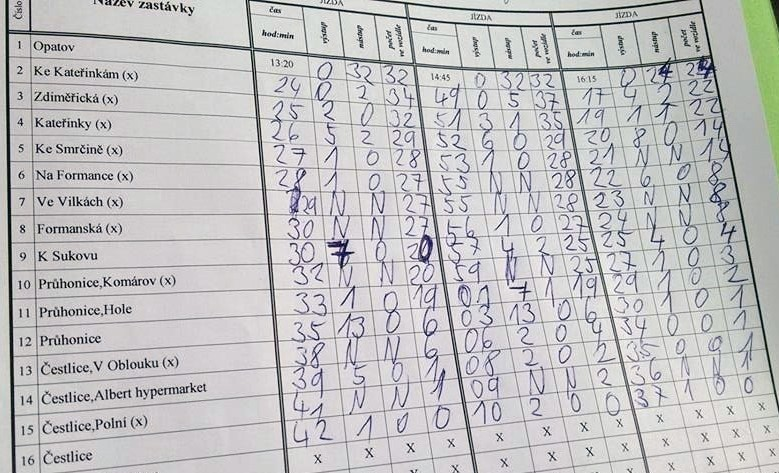 JÍZDA JÍZDA JÍZDA
Číslo Název zastávky čas výstup nástup počet ve vozidle čas výstup nástup počet ve vozidle čas výstup nástup počet ve vozidle
hod:min hod:min hod:min
1 Opatov 13:20 0 32 32 14:45 0 32 32 16:15 0 24 24
2 Ke Kateřinkám (x) 24 0 2 34 49 0 5 37 17 4 2 22
3 Zdiměřická (x) 25 2 0 32 51 3 1 35 19 1 1 22
4 Kateřinky (x) 26 5 2 29 52 6 0 29 20 8 0 14
5 Ke Smrčině (x) 27 1 0 28 53 1 0 28 21 N N 14
6 Na Formance (x) 28 1 0 27 55 N N 28 22 6 0 8
7 Ve Vilkách (x) 29 N N 27 55 N N 28 23 N N 8
8 Formanská (x) 30 N N 27 56 1 0 27 24 N N 8
9 K Sukovu 30 7 0 20 57 4 2 25 25 4 0 4
10 Průhonice,Komárov (x) 32 N N 20 59 N N 25 27 1 0 3
11 Průhonice,Hole 33 1 0 19 01 7 1 19 29 1 0 2
12 Průhonice 35 13 0 6 03 13 0 6 30 1 0 1
13 Čestlice,V Oblouku (x) 38 N N 6 06 2 0 4 34 0 0 1
14 Čestlice,Albert hypermarket 39 5 0 1 08 2 0 2 35 0 0 1
15 Čestlice,Polní (x) 41 N N 1 09 N N 2 36 N N 1
16 Čestlice 42 1 0 0 10 2 0 0 37 1 0 0
x x x x x x x x x x x x